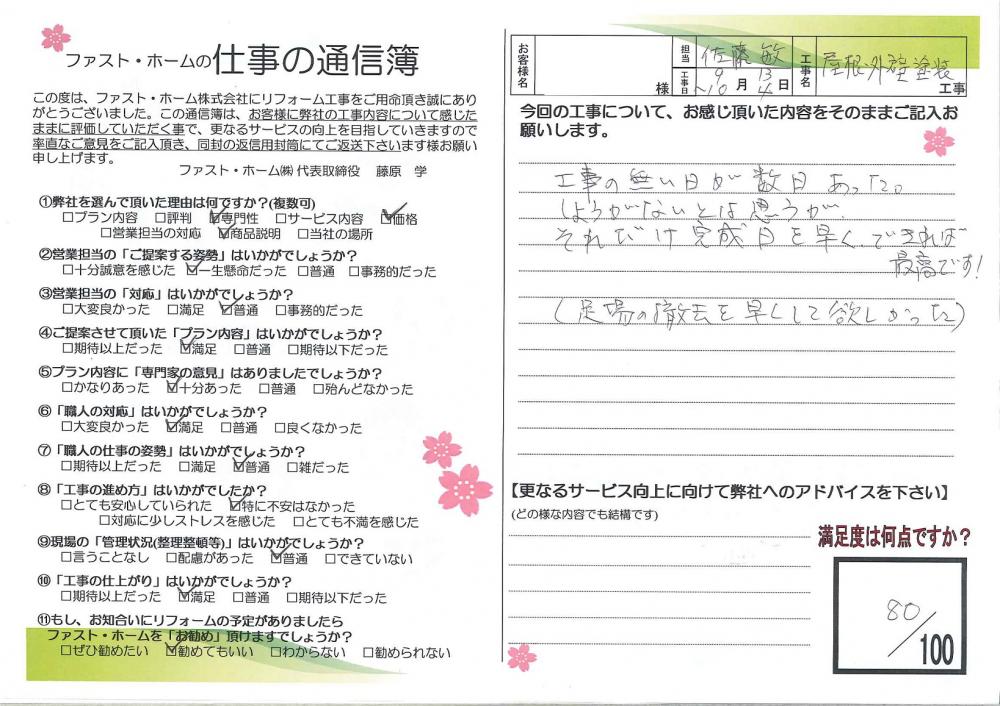 ファスト・ホームの仕事の通信簿
この度は、ファスト・ホーム株式会社にリフォーム工事をご用命頂き誠にあり
がとうございました。この通信簿は、お客様に弊社の工事内容について感じた
ままに評価していただく事で、更なるサービスの向上を目指していきますので
率直なご意見をご記入頂き、同封の返信用封筒にてご返送下さいます様お願い
申し上げます。
ファスト・ホーム㈱ 代表取締役 藤原 学
①弊社を選んで頂いた理由は何ですか?(複数可)
□プラン内容 □評判 ☑専門性 □サービス内容 ☑価格
□営業担当の対応 ☑商品説明 □当社の場所
②営業担当の「ご提案する姿勢」はいかがでしょうか?
□十分誠意を感じた ☑一生懸命だった □普通 □事務的だった
③営業担当の「対応」はいかがでしょうか?
□大変良かった □満足 ☑普通 □事務的だった
④ご提案させて頂いた「プラン内容」はいかがでしょうか?
□期待以上だった ☑満足 □普通 □期待以下だった
⑤プラン内容に「専門家の意見」はありましたでしょうか?
□かなりあった ☑十分あった □普通 □殆んどなかった
⑥「職人の対応」はいかがでしょうか?
□大変良かった ☑満足 □普通 □良くなかった
⑦「職人の仕事の姿勢」はいかがでしょうか?
□期待以上だった □満足 ☑普通 □雑だった
⑧「工事の進め方」はいかがでしたか?
□とても安心していられた ☑特に不安はなかった
□対応に少しストレスを感じた □とても不満を感じた
⑨現場の「管理状況(整理整頓等)」はいかがでしょうか?
□言うことなし □配慮があった ☑普通 □できていない
⑩「工事の仕上がり」はいかがでしょうか?
□期待以上だった ☑満足 □普通 □期待以下だった
⑪もし、お知合いにリフォームの予定がありましたら
ファスト・ホームを「お勧め」頂けますでしょうか?
□ぜひ勧めたい ☑勧めてもいい □わからない □勧められない
お客様名 様
担当 佐藤 敏
工事日 9/13 ~ 10月4日
工事名 屋根・外壁塗装 工事
今回の工事について、お感じ頂いた内容をそのままご記入お
願いします。
工事の無い日が数日あった。
しょうがないとは思うが、
それだけ完成日を早くできれば
最高です!
(足場の撤去を早くして欲しかった)
【更なるサービス向上に向けて弊社へのアドバイスを下さい】
(どの様な内容でも結構です)
満足度は何点ですか?
80/100